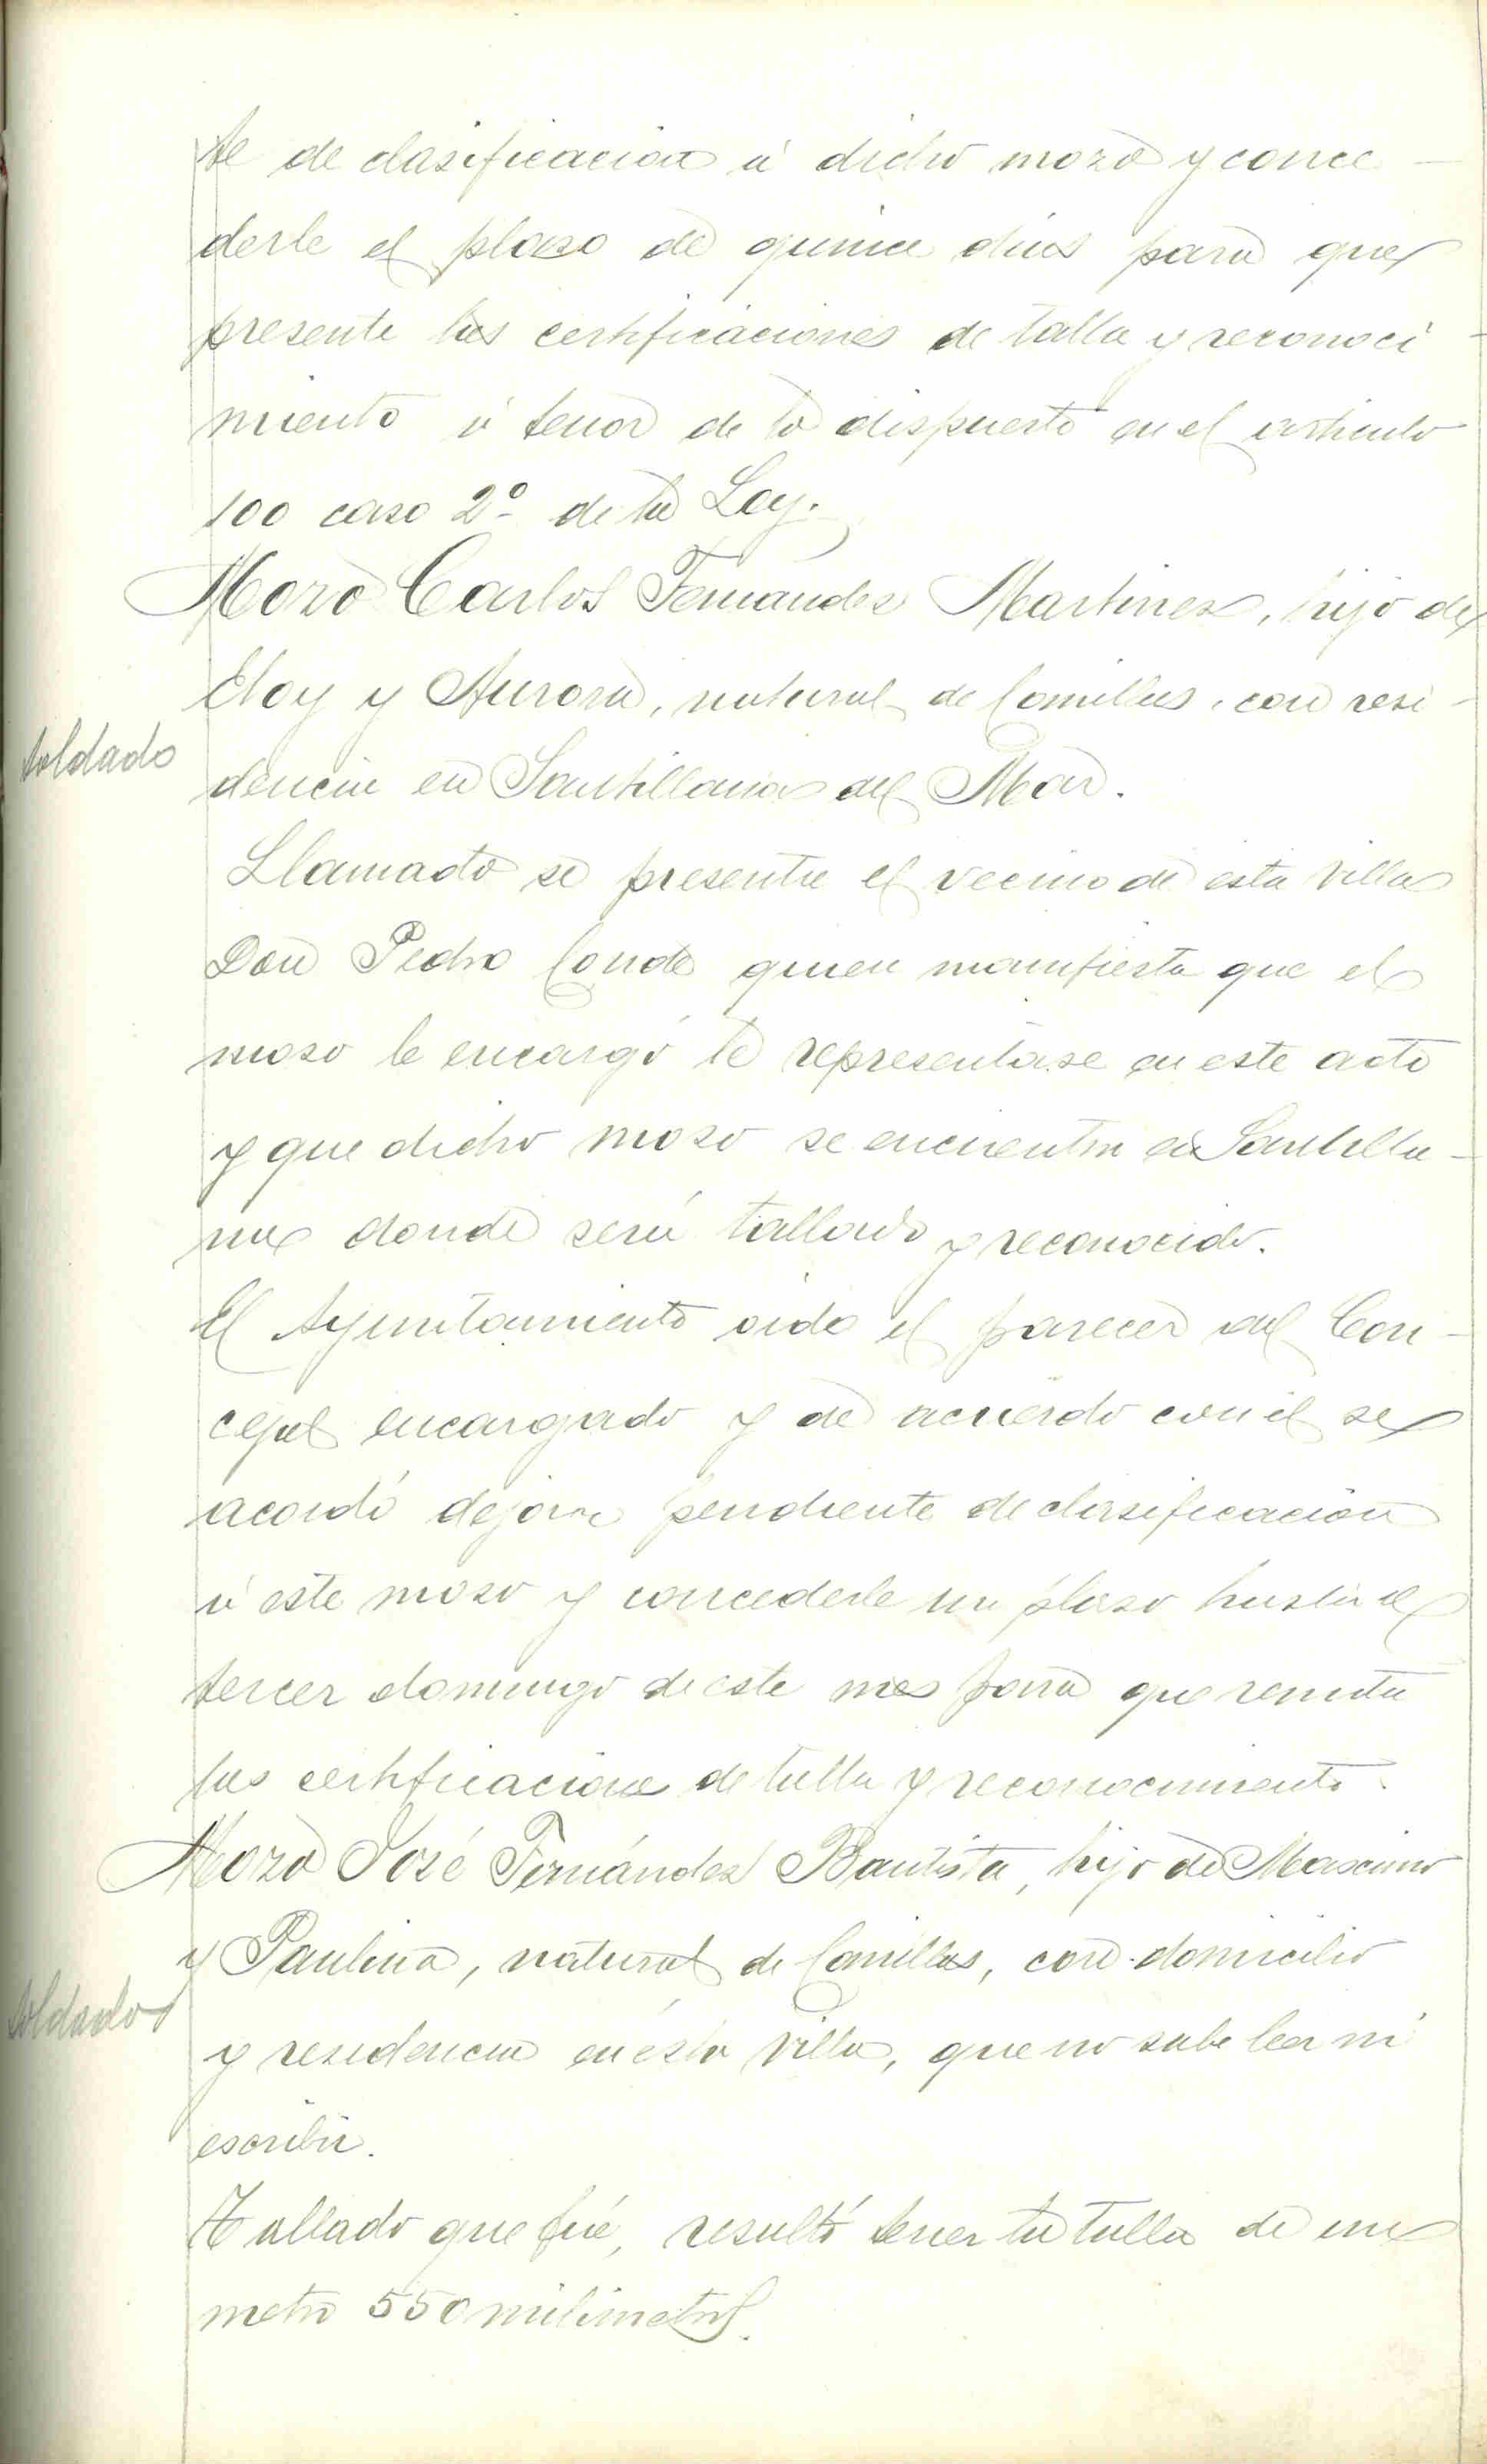 te de clasificación á dicho mozo y conce-
derle el plazo de quince dias para que
presente las certificaciones de talla y reconoci-
miento á tenor de lo dispuesto en el articulo
100 caso 2º de la Ley.
Mozo Carlos Fernandez Martinez, hijo de
Eloy y Aurora, natural de Comillas, con resi-
Soldado
dencia en Santillana del Mar.
Llamado se presenta el vecino de esta villa
Don Pedro Conde quien manifiesta que el
moso le encargó le representase en este acto
y que dicho moso se encuentra en Santilla-
na donde será tallado y reconocido.
El Ayuntamiento oido el parecer del Con-
cejal encargado y de acuerdo con él se
acordó dejar pendiente de clasificación
á este moso y concederle un plaso hasta el
tercer domingo de este mes para que remita
las certificaciones de talla y reconocimiento.
Mozo José Fernández Bautista, hijo de Mascimo
y Paulina, natural de Comillas, con domicilio
Soldado
y residencia en ésta villa, que no sabe leer ni
escribir.
Tallado que fué, resultó tener la talla de un
metro 550 milimetros.